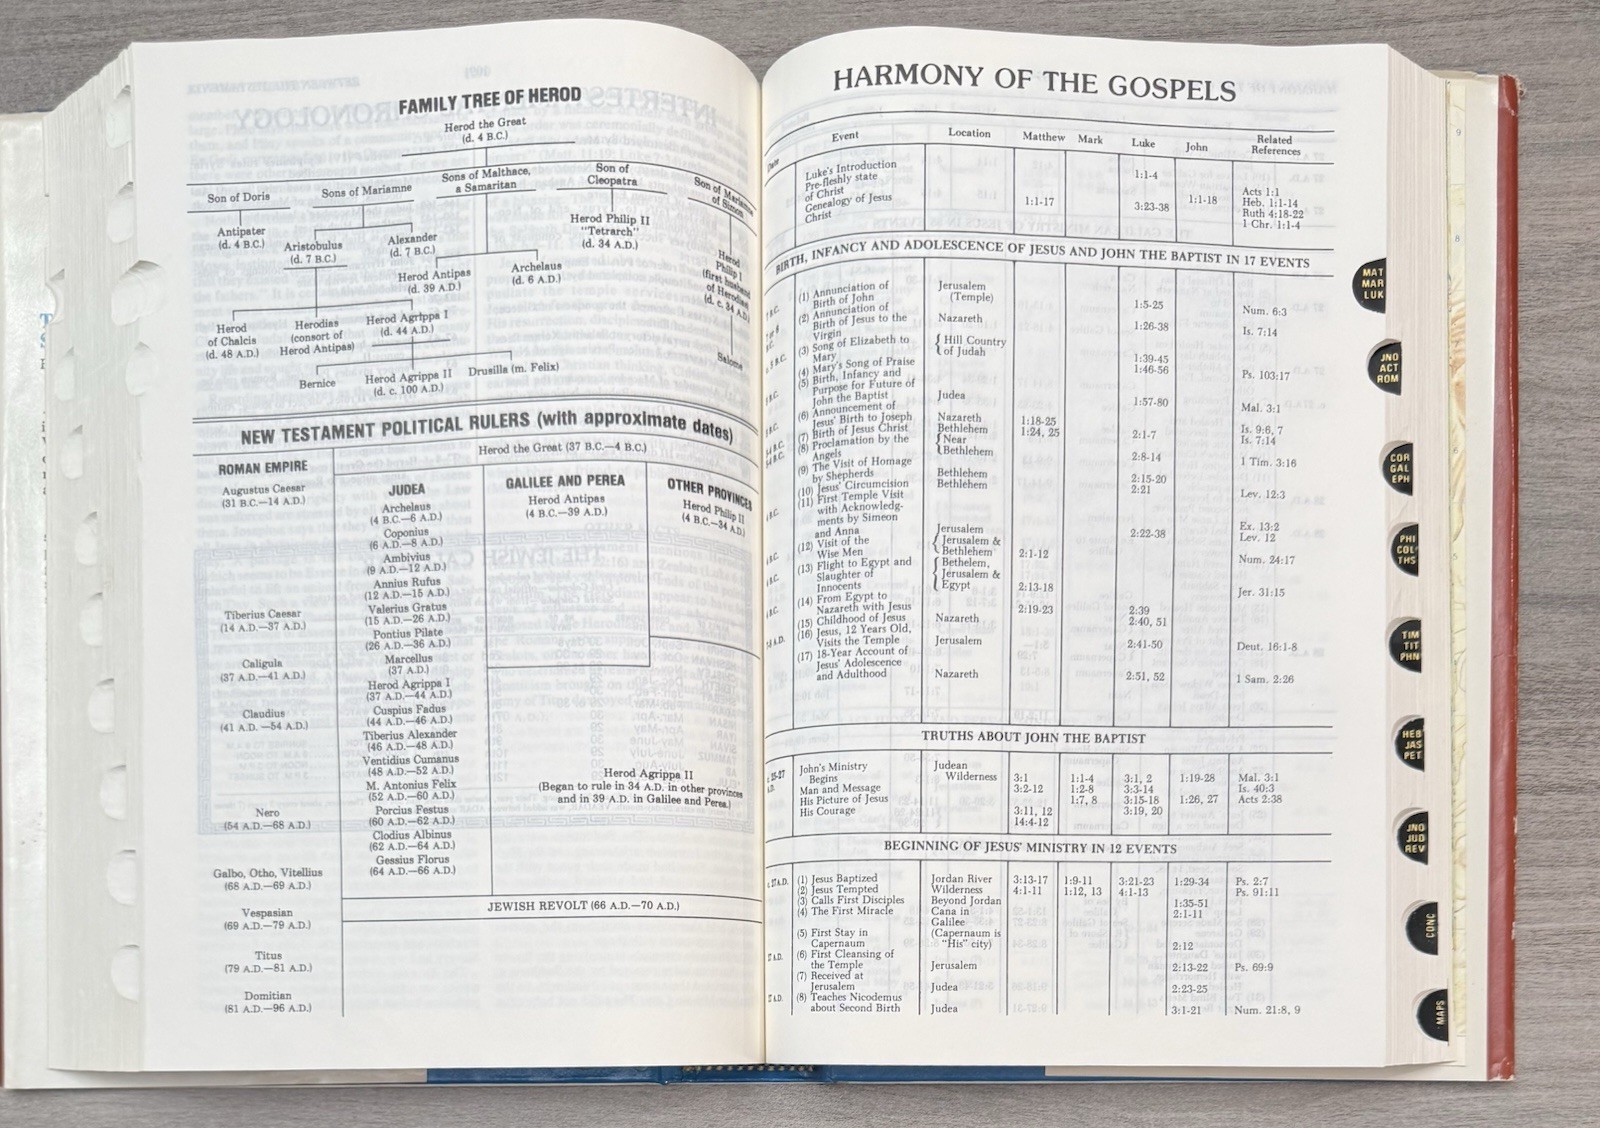 FAMILY TREE OF HEROD
Herod the Great
(d. 4 B.C.)
Son of Doris
Sons of Mariamne
Sons of Malthace,
a Samaritan
Son of
Cleopatra
Son of Mariamne
of Simon
Antipater
(d. 4 B.C.)
Aristobulus
(d. 7 B.C.)
Alexander
(d. 7 B.C.)
Herod Philip II
"Tetrarch"
(d. 34 A.D.)
Herod Antipas
(d. 39 A.D.)
Archelaus
(d. 6 A.D.)
Herod
Philip I
(first husband
of Herodias)
(d. c. 34 A.D.)
Herod
of Chalcis
(d. 48 A.D.)
Herodias
(consort of
Herod Antipas)
Herod Agrippa I
(d. 44 A.D.)
Salome
Bernice
Herod Agrippa II
(d. c. 100 A.D.)
Drusilla (m. Felix)
NEW TESTAMENT POLITICAL RULERS (with approximate dates)
ROMAN EMPIRE
Herod the Great (37 B.C.—4 B.C.)
Augustus Caesar
(31 B.C.—14 A.D.)
Tiberius Caesar
(14 A.D.—37 A.D.)
Caligula
(37 A.D.—41 A.D.)
Claudius
(41 A.D. —54 A.D.)
Nero
(54 A.D.—68 A.D.)
Galbo, Otho, Vitellius
(68 A.D.—69 A.D.)
Vespasian
(69 A.D.—79 A.D.)
Titus
(79 A.D.—81 A.D.)
Domitian
(81 A.D.—96 A.D.)
JUDEA
Archelaus
(4 B.C.—6 A.D.)
Coponius
(6 A.D.—8 A.D.)
Ambivius
(9 A.D.—12 A.D.)
Annius Rufus
(12 A.D.—15 A.D.)
Valerius Gratus
(15 A.D.—26 A.D.)
Pontius Pilate
(26 A.D.—36 A.D.)
Marcellus
(37 A.D.)
Herod Agrippa I
(37 A.D.—44 A.D.)
Cuspius Fadus
(44 A.D.—46 A.D.)
Tiberius Alexander
(46 A.D.—48 A.D.)
Ventidius Cumanus
(48 A.D.—52 A.D.)
M. Antonius Felix
(52 A.D.—60 A.D.)
Porcius Festus
(60 A.D.—62 A.D.)
Clodius Albinus
(62 A.D.—64 A.D.)
Gessius Florus
(64 A.D.—66 A.D.)
GALILEE AND PEREA
Herod Antipas
(4 B.C.—39 A.D.)
OTHER PROVINCES
Herod Philip II
(4 B.C.—34 A.D.)
Herod Agrippa II
(Began to rule in 34 A.D. in other provinces
and in 39 A.D. in Galilee and Perea.)
JEWISH REVOLT (66 A.D.—70 A.D.)
HARMONY OF THE GOSPELS
Date Event Location Matthew Mark Luke John Related References
Luke's Introduction 1:1-4 Acts 1:1
Pre-fleshly state
of Christ 1:1-18 Heb. 1:1-14
Genealogy of Jesus 1:1-17 3:23-38 Ruth 4:18-22
Christ 1 Chr. 1:1-4
BIRTH, INFANCY AND ADOLESCENCE OF JESUS AND JOHN THE BAPTIST IN 17 EVENTS
(1) Annunciation of Jerusalem
Birth of John (Temple) 1:5-25 Num. 6:3
(2) Annunciation of
Birth of Jesus to the Nazareth 1:26-38 Is. 7:14
Virgin
(3) Song of Elizabeth to Hill Country
Mary of Judah 1:39-45
(4) Mary's Song of Praise 1:46-56 Ps. 103:17
(5) Birth, Infancy and
Purpose for Future of
John the Baptist Judea 1:57-80 Mal. 3:1
(6) Announcement of
Jesus' Birth to Joseph Nazareth 1:18-25 Is. 9:6, 7
(7) Birth of Jesus Christ Bethlehem 1:24, 25 2:1-7 Is. 7:14
(8) Proclamation by the Near
Angels Bethlehem 2:8-14 1 Tim. 3:16
(9) The Visit of Homage
by Shepherds Bethlehem 2:15-20
(10) Jesus' Circumcision Bethlehem 2:21 Lev. 12:3
(11) First Temple Visit
with Acknowledg-
ments by Simeon Ex. 13:2
and Anna Jerusalem 2:22-38 Lev. 12
(12) Visit of the Jerusalem &
Wise Men Bethlehem 2:1-12 Num. 24:17
(13) Flight to Egypt and Bethelem,
Slaughter of Jerusalem &
Innocents Egypt 2:13-18 Jer. 31:15
(14) From Egypt to
Nazareth with Jesus 2:19-23 2:39
(15) Childhood of Jesus Nazareth 2:40, 51
(16) Jesus, 12 Years Old,
Visits the Temple Jerusalem 2:41-50 Deut. 16:1-8
(17) 18-Year Account of
Jesus' Adolescence
and Adulthood Nazareth 2:51, 52 1 Sam. 2:26
TRUTHS ABOUT JOHN THE BAPTIST
John's Ministry Judean
Begins Wilderness 3:1 1:1-4 3:1, 2 1:19-28 Mal. 3:1
Man and Message 3:2-12 1:2-8 3:3-14 Is. 40:3
His Picture of Jesus 1:7, 8 3:15-18 1:26, 27 Acts 2:38
His Courage 3:11, 12 3:19, 20
14:4-12
BEGINNING OF JESUS' MINISTRY IN 12 EVENTS
c. 27 A.D. (1) Jesus Baptized Jordan River 3:13-17 1:9-11 3:21-23 1:29-34 Ps. 2:7
(2) Jesus Tempted Wilderness 4:1-11 1:12, 13 4:1-13 Ps. 91:11
(3) Calls First Disciples Beyond Jordan 1:35-51
(4) The First Miracle Cana in 2:1-11
Galilee
(5) First Stay in (Capernaum is
Capernaum "His" city) 2:12
(6) First Cleansing of
the Temple Jerusalem 2:13-22 Ps. 69:9
(7) Received at
Jerusalem Judea 2:23-25
(8) Teaches Nicodemus
about Second Birth Judea 3:1-21 Num. 21:8, 9
MAT
MAR
LUK
JNO
ACT
ROM
COR
GAL
EPH
PHI
COL
THS
TIM
TIT
PHN
HEB
JAS
PET
JNO
JUD
REV
CONC
MAPS